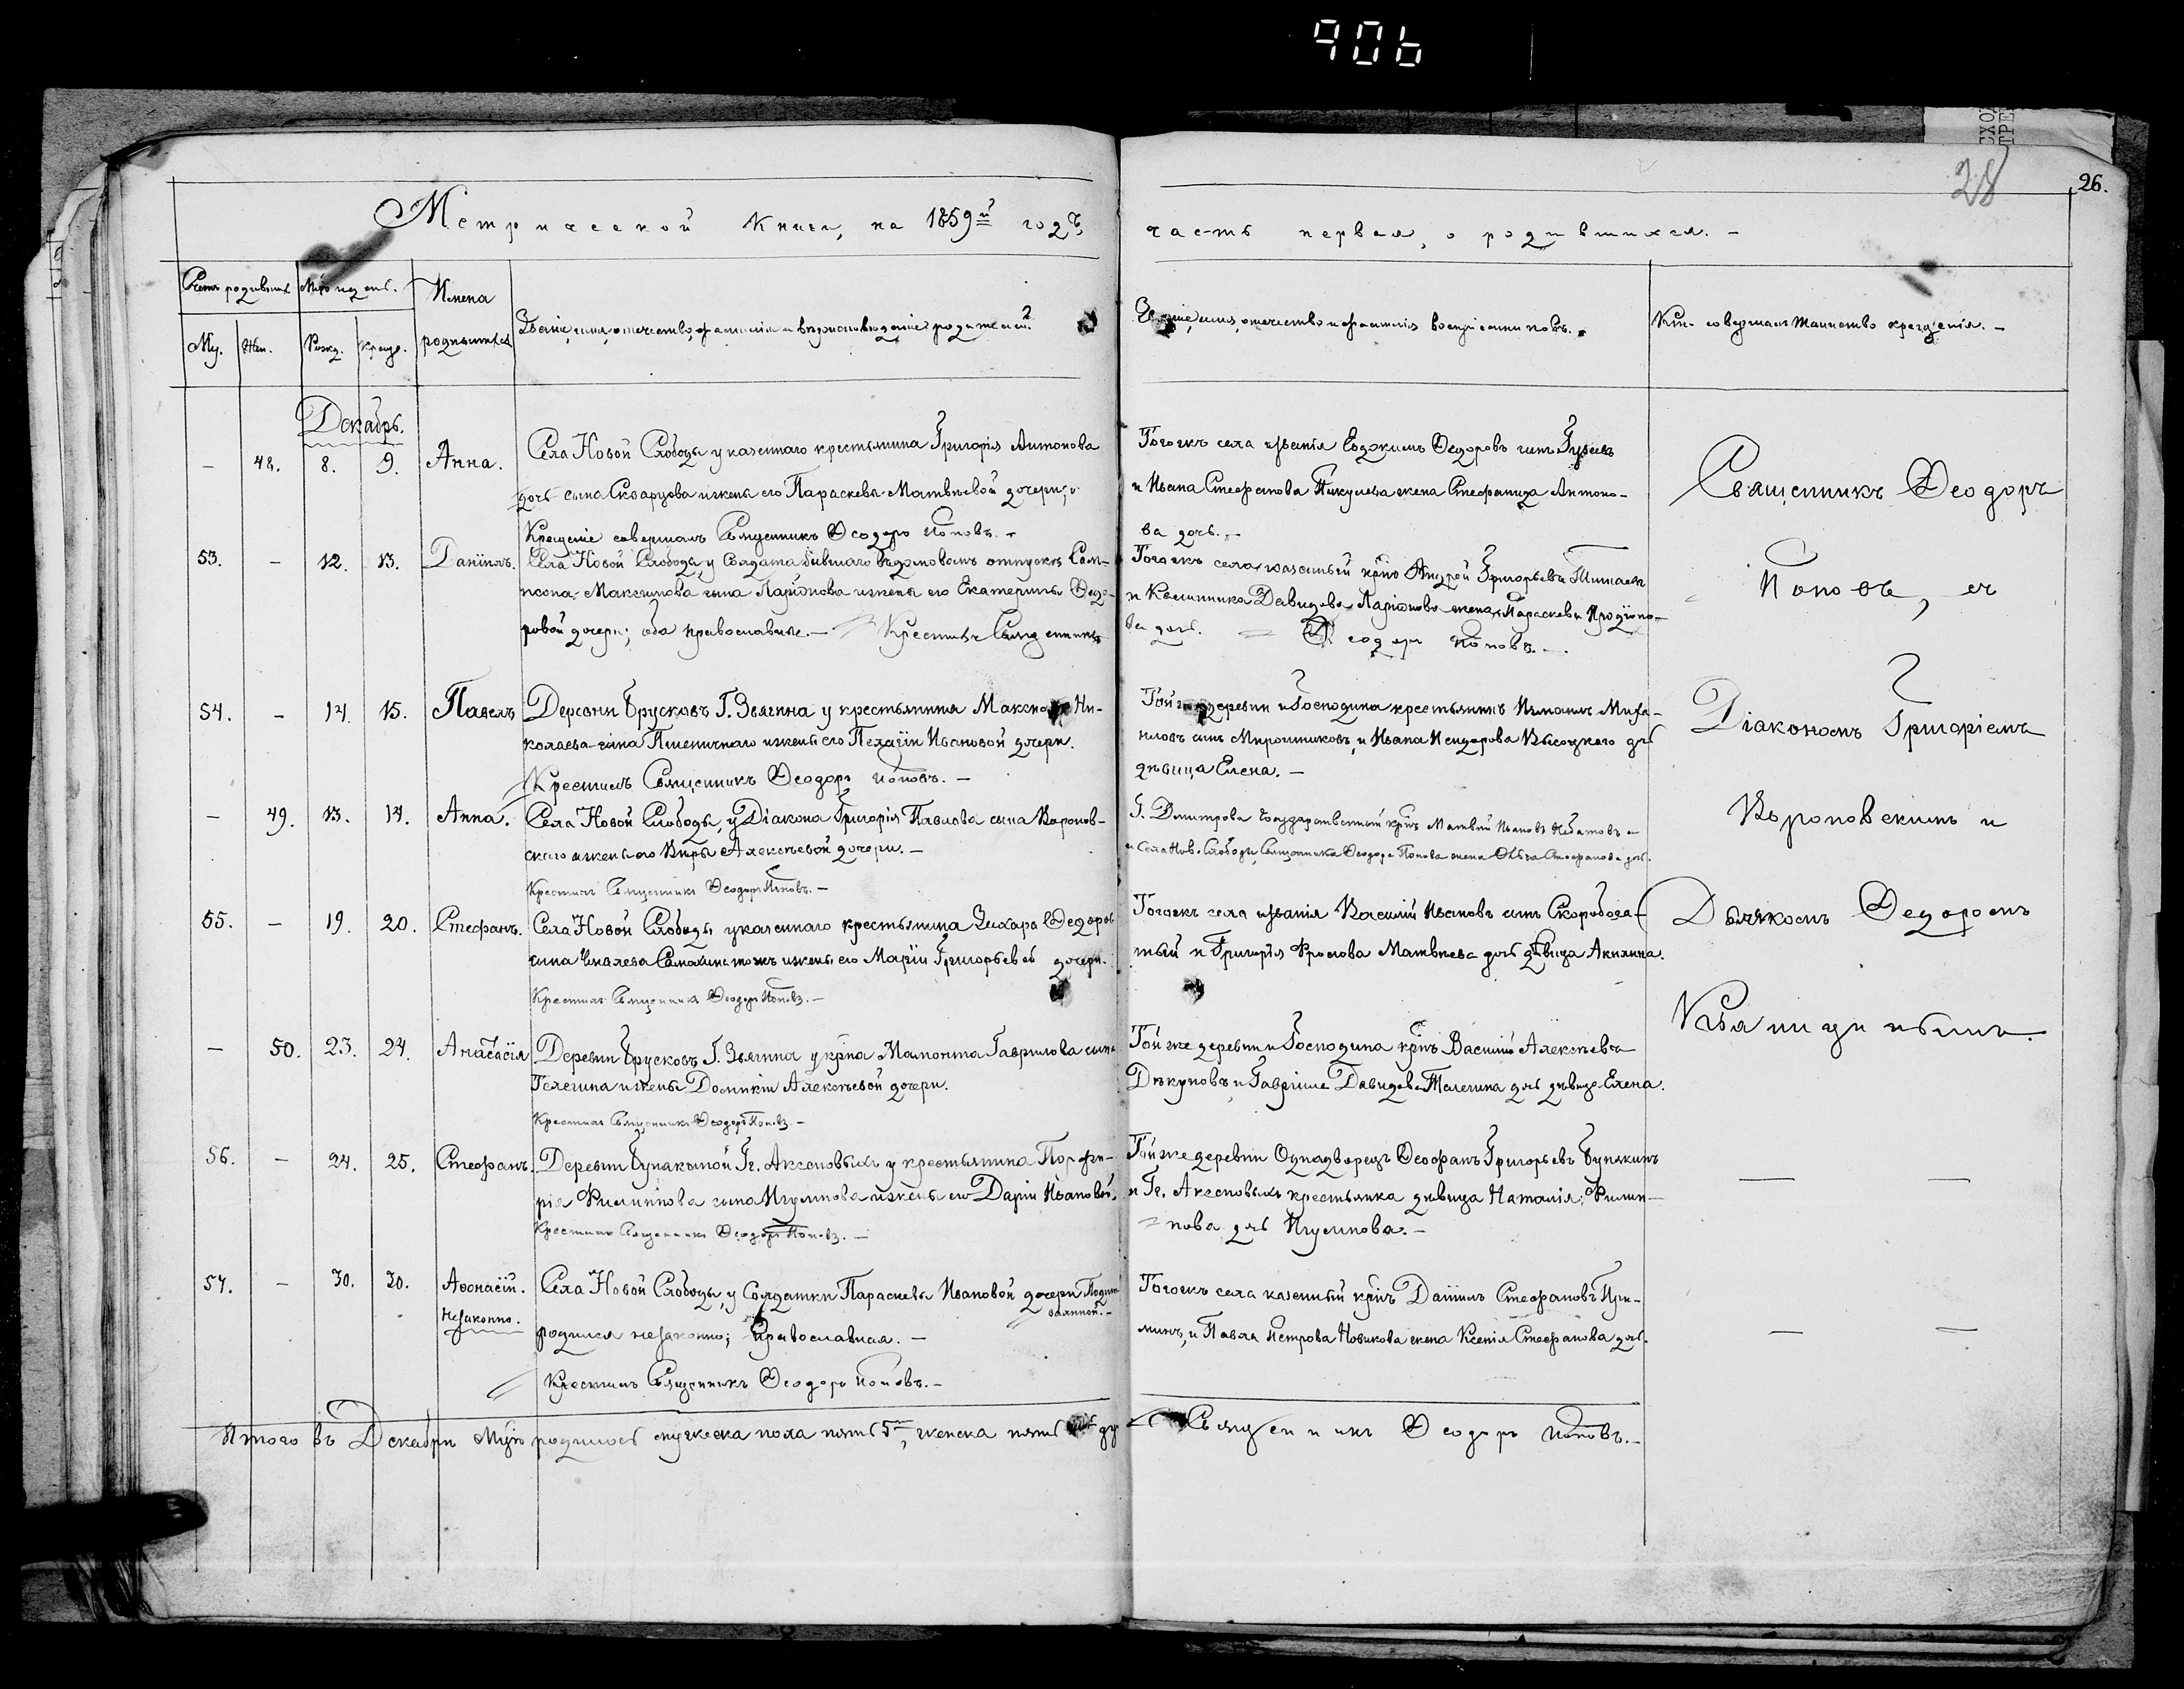 906
28
26.
Метрической Книги, на 1859й годъ,
часть первая, о родившихся. -
Счетъ родивших.
Мѣс. и день.
Имена родившихся
Званіе, имя, отчество, фамилія и вѣроисповѣданіе родителей.
Званіе, имя, отчество и фамилія воспріемниковъ. -
Кто совершалъ таинство крещенія. -
Му.
Жен.
Рожд.
Крещ.
Декабрь.
- 48. 8. 9. Анна.
Села Новой Слободы у казеннаго крестьянина Григорія Антонова
сына и жены его Параскевы Матвѣевой дочери;
Крещеніе совершалъ Священникъ Ѳеодоръ Поповъ. -
Тогожъ села и званія Евдокимъ Ѳедоровъ сынъ Гузеевъ
и Ивана Стефанова Пикулева жена Стефанида Антоно-
ва дочь. -
53. - 12. 13. Даніилъ.
Села Новой Слободы, у Солдата бывшаго въ домовомъ отпускѣ Сам-
псона Максимова сына Ларіонова и жены его Екатерины Ѳедо-
ровой дочери; оба православные. - Крестилъ Священникъ
Тогожъ села казенный крнъ Андрей Григорьевъ Тимаевъ
и Калинника Давидова Ларіонова жена Параскева Продіоно-
ва дочь. Ѳеодоръ Поповъ. -
54. - 14. 15. Павелъ
Деревни Брусковъ Г. Звягина у крестьянина Максима Ни-
колаева сына Пшеничнаго и жены его Пелагіи Ивановой дочери.
Крестилъ Священникъ Ѳеодоръ Поповъ. -
Той же деревни и Господина крестьянинъ Игнатъ Миха-
иловъ сынъ Мирошниковъ, и Ивана Исидорова Высоцкаго дчь
дѣвица Елена. -
- 49. 13. 14. Анна.
Села Новой Слободы, у Діакона Григорія Павлова сына Воронов-
скаго и жены его Вѣры Алексѣевой дочери. -
Крестилъ Священникъ Ѳеодоръ Поповъ. -
Г. Дмитрова Государственный крнъ Матвей Ивановъ
и Села Нов. Слободы, Священника Ѳеодора Попова жена Ольга Стефанова дчь.
55. - 19. 20. Стефанъ.
Села Новой Слободы у казеннаго крестьянина Захара Ѳедоров
сына Чекалева Самохинъ тожъ и жены его Маріи Григорьевой дочери.
Крестилъ Священникъ Ѳеодоръ Поповъ. -
Тогожъ села и званія Василій Ивановъ сынъ Скоробога-
тый и Григорія Фролова Матвѣева дчь дѣвица Акилина.
- 50. 23. 24. Анастасія
Деревни Брусковъ Г. Звягина у крна Мамонта Гаврилова сына
Телегина и жены Домникіи Алексѣевой дочери.
Крестилъ Священникъ Ѳеодоръ Поповъ. -
Той же деревни и Господина крнъ Василій Алексѣевъ
Дѣкуновъ и Гавріила Давидова Телегина дчь дѣвица Елена.
56. - 24. 25. Стефанъ.
Деревни Бунакиной Гг. Аксеновыхъ у крестьянина Порфи-
рія Филиппова сына Игумнова и жены его Даріи Ивановой.
Крестилъ Священникъ Ѳеодоръ Поповъ. -
Той же деревни Однодворецъ Ѳеофанъ Григорьевъ Бунякинъ
и Гг. Аксеновыхъ крестьянка дѣвица Наталія Филип-
пова дчь Игумнова. -
57. - 30. 30. Аѳонасій. Незаконно.
Села Новой Слободы, у Солдатки Параскевы Ивановой дочери
родился незаконно; Православная. -
Крестилъ Священникъ Ѳеодоръ Поповъ. -
Тогожъ села казенный крнъ Даніилъ Стефановъ При-
минъ, и Павла Петрова Новикова жена Ксенія Стефанова дчь.
Священникъ Ѳеодоръ
Поповъ, съ
Діакономъ Григоріемъ
Вороновскимъ и
Дьячкомъ Ѳедоромъ
Итого въ Декабрѣ Мцѣ родилось мужеска пола пять 5ть, женска
Священникъ Ѳеодоръ Поповъ. -